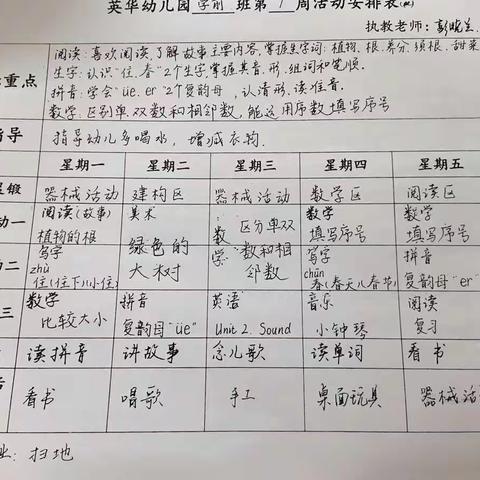 英华幼儿园 学前 班第 1 周活动安排表
执教老师：彭晓兰
重点
阅读：喜欢阅读，了解故事主要内容，掌握生字词：植物、根、养分、须根、甜菜
生字：认识“住、春”2个生字，掌握其音、形、组词和笔顺.
拼音：学会“üe、er”2个复韵母，认清形、读准音.
数学：区别单、双数和相邻数，能运用序数填写序号
指导
指导幼儿多喝水，增减衣物.
星期一 星期二 星期三 星期四 星期五
锻 器械活动 建构区 器械活动 数学区 阅读区
动一 阅读（故事） 植物的根 美术 绿色的大树 数学 区分单双数和相邻数 数学 填写序号 数学 填写序号
动二 写字 zhù 住（住下）（小住） 写字 chūn 春（春天）（春节） 拼音 复韵母“er”
三 数学 比较大小 拼音 复韵母“üe” 英语 Unit 2. Sound 音乐 小钟琴 阅读 复习
读拼音 讲故事 念儿歌 读单词 看书
看书 唱歌 手工 桌面玩具 器械活
业：扫地